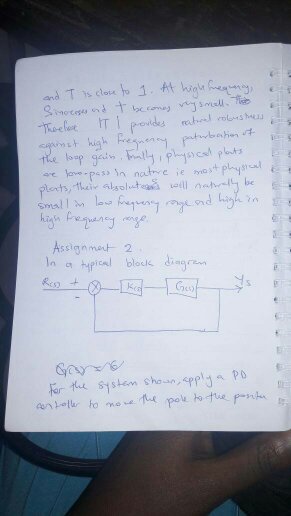 and T is close to 1. At high frequency,
S increases and T becomes very small.
Therefore |T| provides natural robustness
against high frequency paturbation of
the loop gain. finally, physical plats
are low-pass in nature ie most physical
plants, their absolute S will naturally be
small in low frequency range and high in
high frequency range.
Assignment 2.
In a typical block diagram
R(s) + K(s) G(s) Ys
-
For the system shown, apply a PD
controller to move the pole to the positu